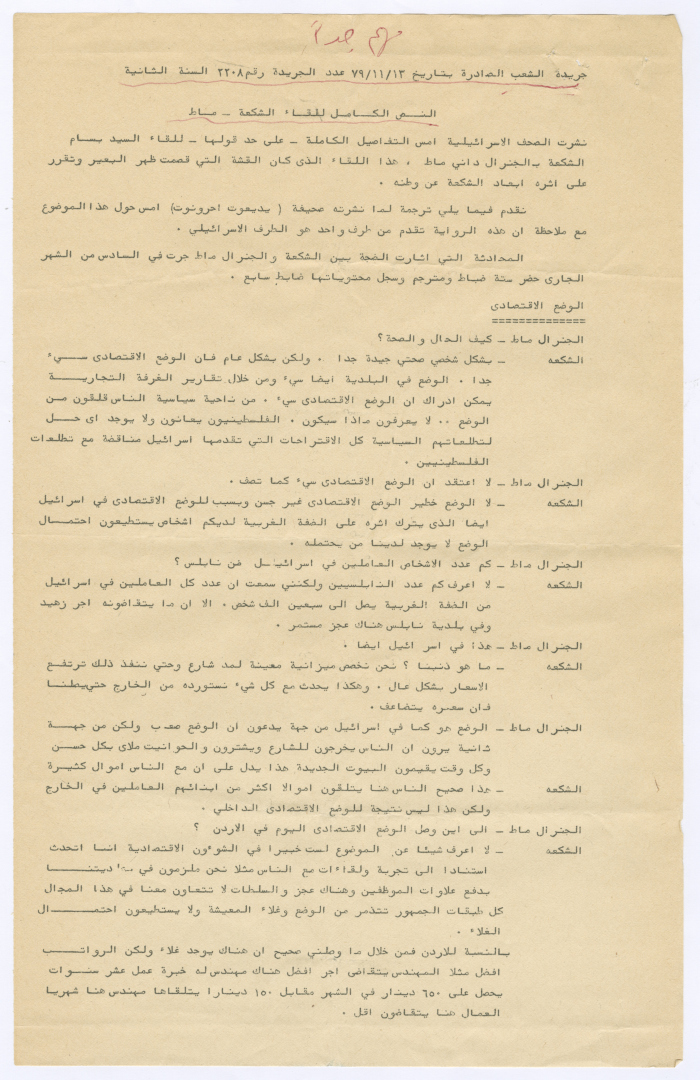 مهم جداً
جريدة الشعب الصادرة بتاريخ ٧٩/١١/١٣ عدد الجريدة رقم ٢٢٠٨ السنة الثانية
النص الكامل للقاء الشكعة - ماط
نشرت الصحف الاسرائيلية امس التفاصيل الكاملة - على حد قولها - للقاء السيد بسام
الشكعة بالجنرال داني ماط ، هذا اللقاء الذى كان القشة التي قصمت ظهر البعير وتقرر
على اثره ابعاد الشكعة عن وطنه .
نقدم فيما يلي ترجمة لما نشرته صحيفة ( يديعوت احرونوت) امس حول هذا الموضوع
مع ملاحظة ان هذه الرواية تقدم من طرف واحد هو الطرف الاسرائيلي .
المحادثة التي اشارت الضجة بين الشكعة والجنرال ماط جرت في السادس من الشهر
الجارى حضر ستة ضباط ومترجم وسجل محتوياتها ضابط سابع .
الوضع الاقتصادى
==============
الجنرال ماط - كيف الحال والصحة؟
الشكعه - بشكل شخصي صحتي جيدة جدا . ولكن بشكل عام فان الوضع الاقتصادى سيء
جدا . الوضع في البلدية ايضا سيء ومن خلال تقارير الغرفة التجارية
يمكن ادراك ان الوضع الاقتصادى سيء . من ناحية سياسية الناس قلقون من
الوضع .. لا يعرفون ماذا سيكون . الفلسطينيون يعانون ولا يوجد اى حل
لتطلعاتهم السياسية كل الاقتراحات التي تقدمها اسرائيل مناقضة مع تطلعات
الفلسطينيين .
الجنرال ماط - لا اعتقد ان الوضع الاقتصادى سيء كما تصف .
الشكعه - لا الوضع خطير الوضع الاقتصادى غير حسن وبسبب للوضع الاقتصادى في اسرائيل
ايضا الذى يترك اثره على الضفة الغربية لديكم اشخاص يستطيعون احتمال
الوضع لا يوجد لدينا من يحتمله .
الجنرال ماط - كم عدد الاشخاص العاملين في اسرائيل من نابلس ؟
الشكعه - لا اعرف كم عدد النابلسيين ولكنني سمعت ان عدد كل العاملين في اسرائيل
من الضفة الغربية يصل الى سبعين الف شخص . الا ان ما يتقاضونه اجر زهيد
وفي بلدية نابلس هناك عجز مستمر .
الجنرال ماط - هذا في اسرائيل ايضا .
الشكعه - ما هو ذنبنا ؟ نحن نخصص ميزانية معينة لمد شارع وحتي ننفذ ذلك ترتفع
الاسعار بشكل عال . وهكذا يحدث مع كل شيء نستورده من الخارج حتي يصلنا
فان سعره يتضاعف .
الجنرال ماط - الوضع هو كما في اسرائيل من جهة يدعون ان الوضع صعب ولكن من جهة
ثانية يرون ان الناس يخرجون للشارع ويشترون والحوانيت ملاى بكل حسن
وكل وقت يقيمون البيوت الجديدة هذا يدل على ان مع الناس اموال كثيرة
الشكعه - هذا صحيح الناس هنا يتلقون اموالا اكثر من ابنائهم العاملين في الخارج
ولكن هذا ليس نتيجة للوضع الاقتصادى الداخلي .
الجنرال ماط - الى اين وصل الوضع الاقتصادى اليوم في الاردن ؟
الشكعه - لا اعرف شيئا عن الموضوع لست خبيرا في الشوءون الاقتصادية انما اتحدث
استنادا الى تجربة ولقاءات مع الناس مثلا نحن ملزمون في
بدفع علاوات الموظفين وهناك عجز والسلطات لا تتعاون معنا في هذا المجال
كل طبقات الجمهور تتذمر من الوضع وغلاء المعيشة ولا يستطيعون احتمال
الغلاء .
بالنسبة للاردن فمن خلال ما وصلني صحيح ان هناك يوجد غلاء ولكن الرواتب
افضل مثلا المهندس يتقاضى اجر افضل هناك مهندس له خبرة عمل عشر سنوات
يحصل على ٦٥٠ دينار في الشهر مقابل ١٥٠ دينارا يتلقاها مهندس هنا شهريا
العمال هنا يتقاضون اقل .